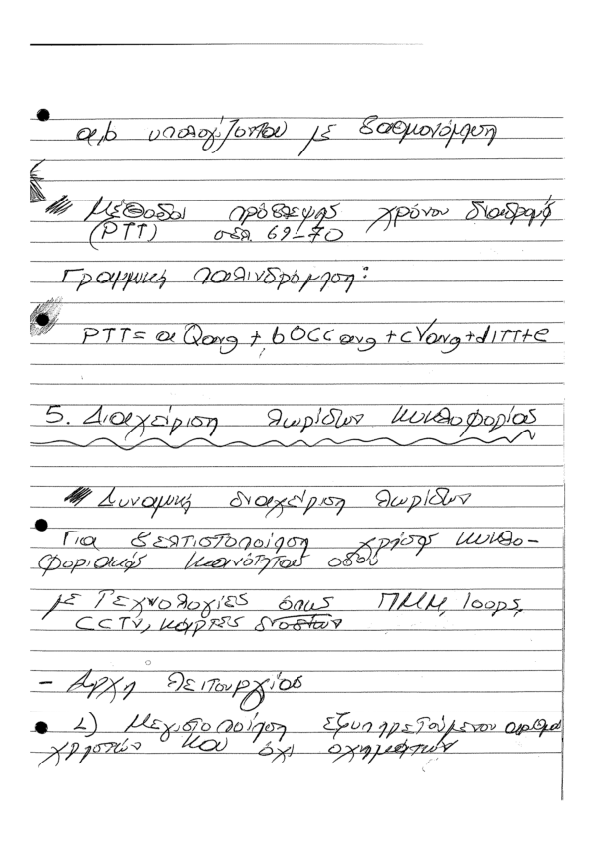 a,b υπολογίζονται με βαθμονόμηση
Μέθοδοι πρόβλεψης χρόνου διαδρομής
(PTT) σελ. 69-70
Γραμμική παλινδρόμηση:
PTT = a Qavg + b OCCavg + cVavg + dITT + e
5. Διαχείριση λωρίδων κυκλοφορίας
Δυναμική διαχείριση λωρίδων
Για βελτιστοποίηση χρήσης κυκλο-
φοριακής ικανότητας οδού
με τεχνολογίες όπως ΠΜΜ, loops,
CCTV, κάρτες
- Αρχή λειτουργίας
1) Μεγιστοποίηση εξυπηρετούμενου αριθμού
χρηστών και όχι οχημάτων